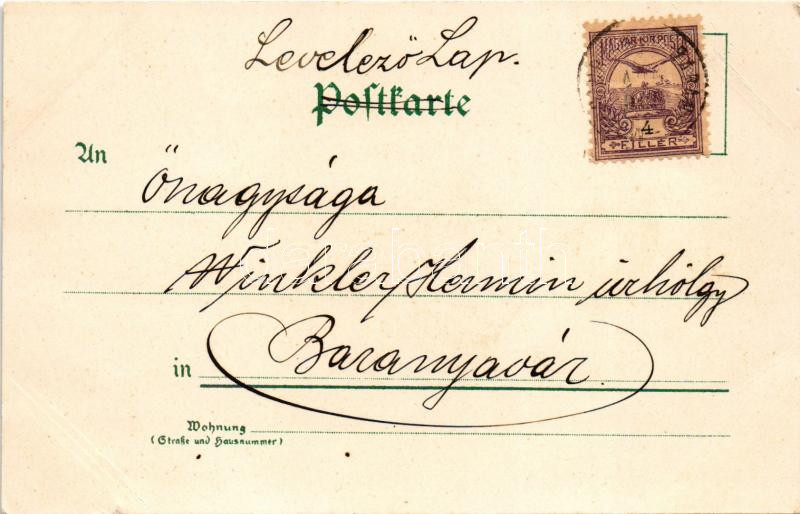 Levelező Lap.
Postkarte
MAGYAR KIR. POSTA
4
FILLÉR
An
Őnagysága
Winkler Hermin úrhölgy
in Baranyavár
Wohnung
(Straße und Hausnummer)